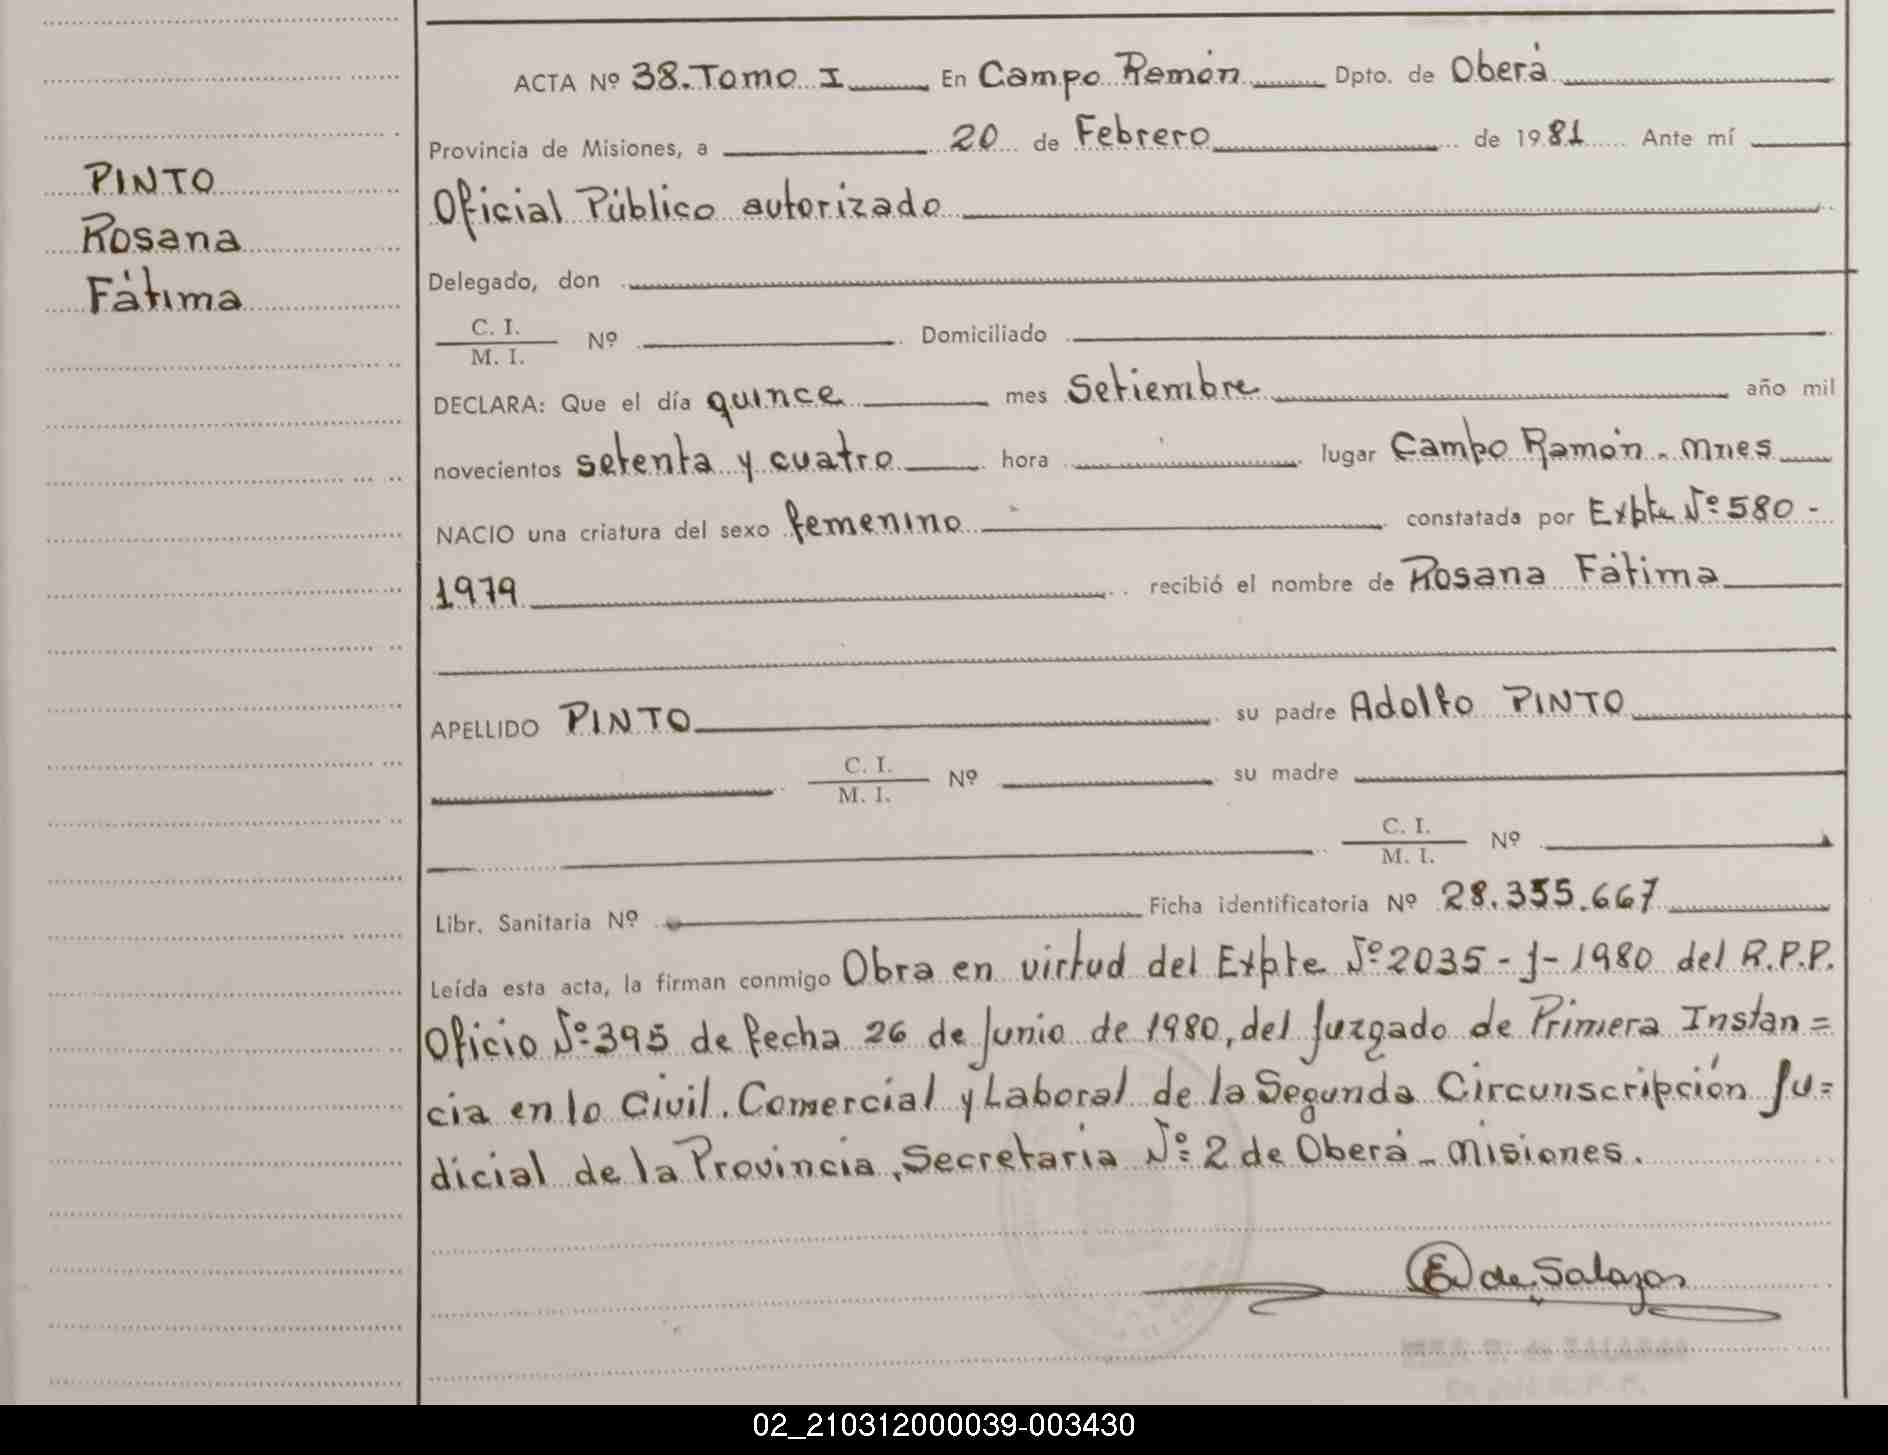 ACTA Nº 38. Tomo I En Campo Ramón Dpto. de Oberá
Provincia de Misiones, a 20 de Febrero de 1981 Ante mí
PINTO
Rosana
Fátima
Oficial Público autorizado
Delegado, don
C. I.
M. I. Nº Domiciliado
DECLARA: Que el día quince mes Setiembre año mil
novecientos setenta y cuatro hora lugar Campo Ramón - Mnes
NACIO una criatura del sexo femenino constatada por Expte Nº 580 -
1979 recibió el nombre de Rosana Fátima
APELLIDO PINTO su padre Adolfo PINTO
C. I.
M. I. Nº su madre
C. I.
M. I. Nº
Libr. Sanitaria Nº Ficha identificatoria Nº 28.355.667
Leída esta acta, la firman conmigo Obra en virtud del Expte Nº 2035 - J - 1980 del R.P.P.
Oficio Nº 395 de fecha 26 de Junio de 1980, del Juzgado de Primera Instan =
cia en lo Civil. Comercial y Laboral de la Segunda Circunscripción Ju =
dicial de la Provincia, Secretaria Nº 2 de Oberá - Misiones.
E. de Salazar
02_210312000039-003430